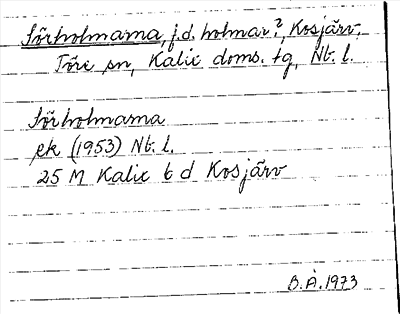 Sörholmarna, f.d. holmar?, Kosjärv,
Töre sn, Kalix doms. tg, Nb. l.
Sörholmarna
ek (1953) Nb. l.
25 M Kalix 6 d Kosjärv
B.Å. 1973